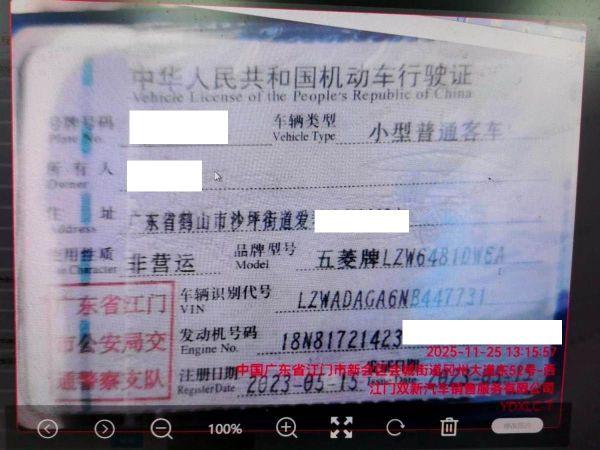 中华人民共和国机动车行驶证
Vehicle License of the People's Republic of China
号牌号码
Plate No.
车辆类型
Vehicle Type
小型普通客车
所有人
Owner
住址
Address
广东省鹤山市沙坪街道爱
使用性质
Use Character
非营运
品牌型号
Model
五菱牌LZW6481DW6A
广东省江门
市公安局交
通警察支队
车辆识别代号
VIN
LZWADAGA6NB447731
发动机号码
Engine No.
18N81721423
注册日期
Register Date
2023-05-15
2025-11-25 13:15:57
中国广东省江门市新会区会城街道冈州大道东56号-西
江门双新汽车销售服务有限公司
YDXLCT
100%